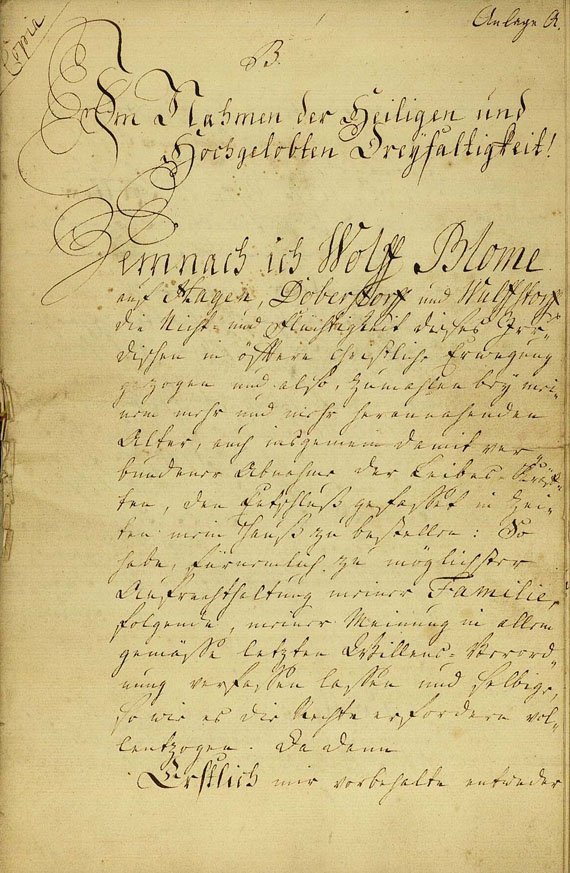 Copia
Anlage A.
B.
Im Nahmen der Heiligen und
Hochgelobten Dreyfaltigkeit!
Demnach ich Wolff Blome
auf Hagen, Dobersdorff und Wulffstorff
die Nicht- und Flüchtigkeit dieses Irr-
dischen in öftere Christliche Erwegung
gezogen und also, zumahlen bey mei-
nem mehr und mehr herannahenden
Alter, auch insgemein damit ver-
bundener Abnahme der Leibes-Kräf-
ten, den Entschluß gefasset in Zei-
ten mein Hauß zu bestellen: So
habe, fürnemlich zu möglichster
Aufrechthaltung meiner Familie,
folgende, meiner Meinung in allem
gemässe letzten Willens-Verord-
nung verfassen lassen und selbige,
so wie es die Rechte erfordern vol-
lentzogen. Da denn
Erstlich mir vorbehalte entweder